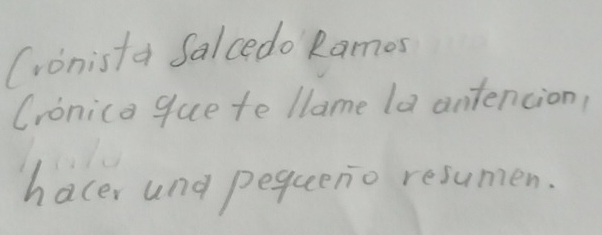 Crónista Salcedo Ramos
Crónica que te llame la antencion,
hacer una pequeño resumen.